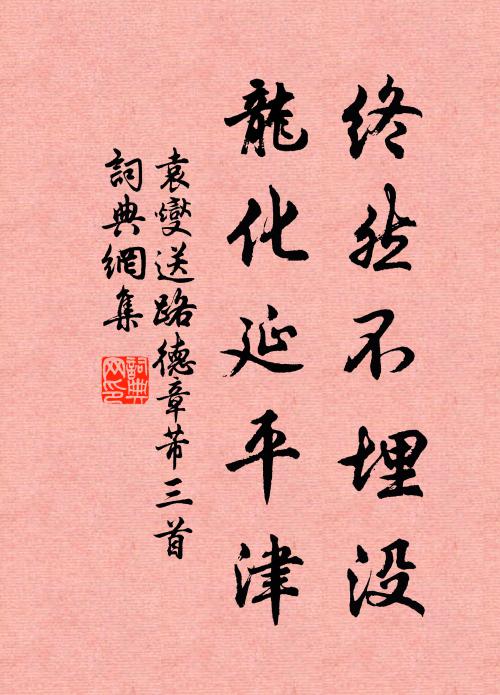 終然不埋没
龍化延平津
袁燮送路德章芾三首
詞典網集
詞典
网印